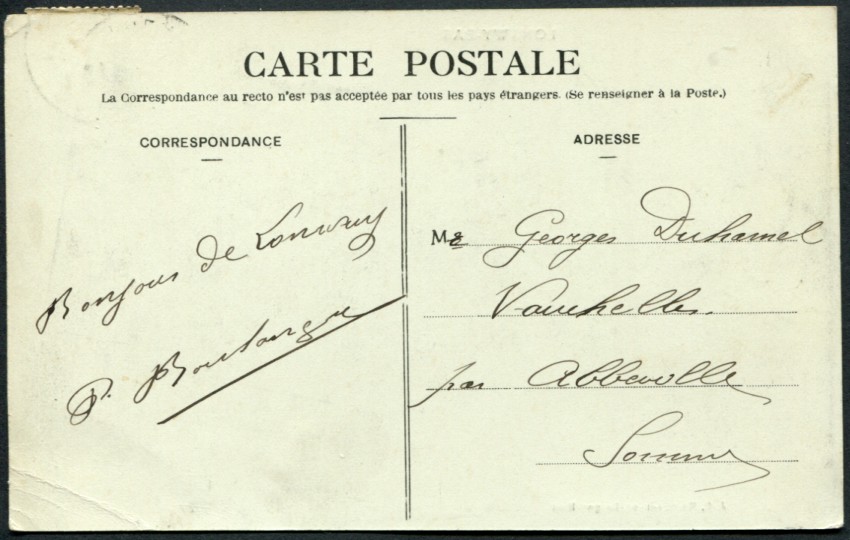 CARTE POSTALE
La Correspondance au recto n'est pas acceptée par tous les pays étrangers. (Se renseigner à la Poste.)
CORRESPONDANCE
Bonjour de Longwy
P. Boulanger
ADRESSE
Mr Georges Duhamel
Vauchelles
par Abbeville
Somme